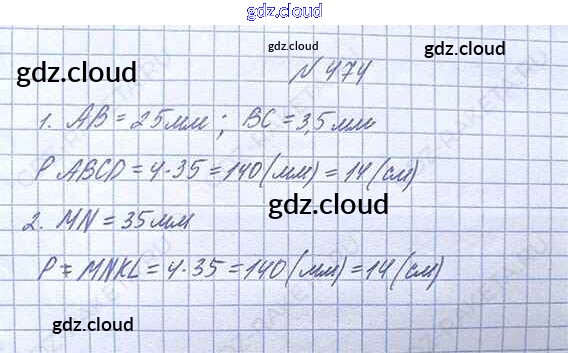 gdz.cloud
gdz.cloud gdz.cloud gdz.cloud
N 474
1. AB = 25 мм ; BC = 3,5 мм
P ABCD = 4·35 = 140 (мм) = 14 (см)
gdz.cloud
2. MN = 35 мм
P = MNKL = 4·35 = 140 (мм) = 14 (см)
gdz.cloud